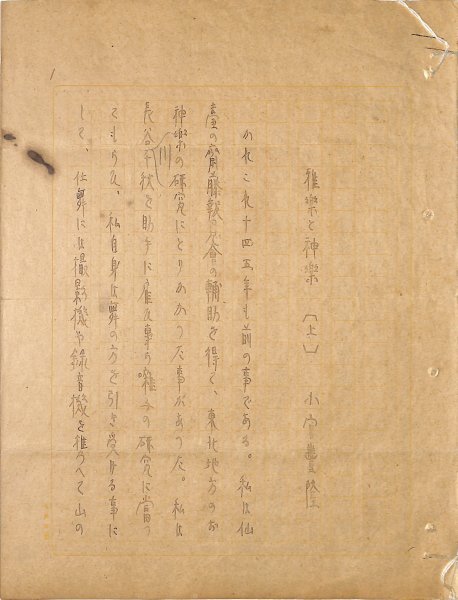 雅樂と神樂 〔上〕 小宮豊隆
かれこれ十四五年も前の事である。私は仙
臺の齋藤報恩會の輔助を得て、東北地方のお
神樂の研究にとりかかつた事があつた。私は
長谷川千秋を助手に雇ひ、事ら囃子の研究に當つ
てもらひ、私自身は舞の方を引き受ける事に
して、仕舞には撮影機や錄音機を携へて山の
1